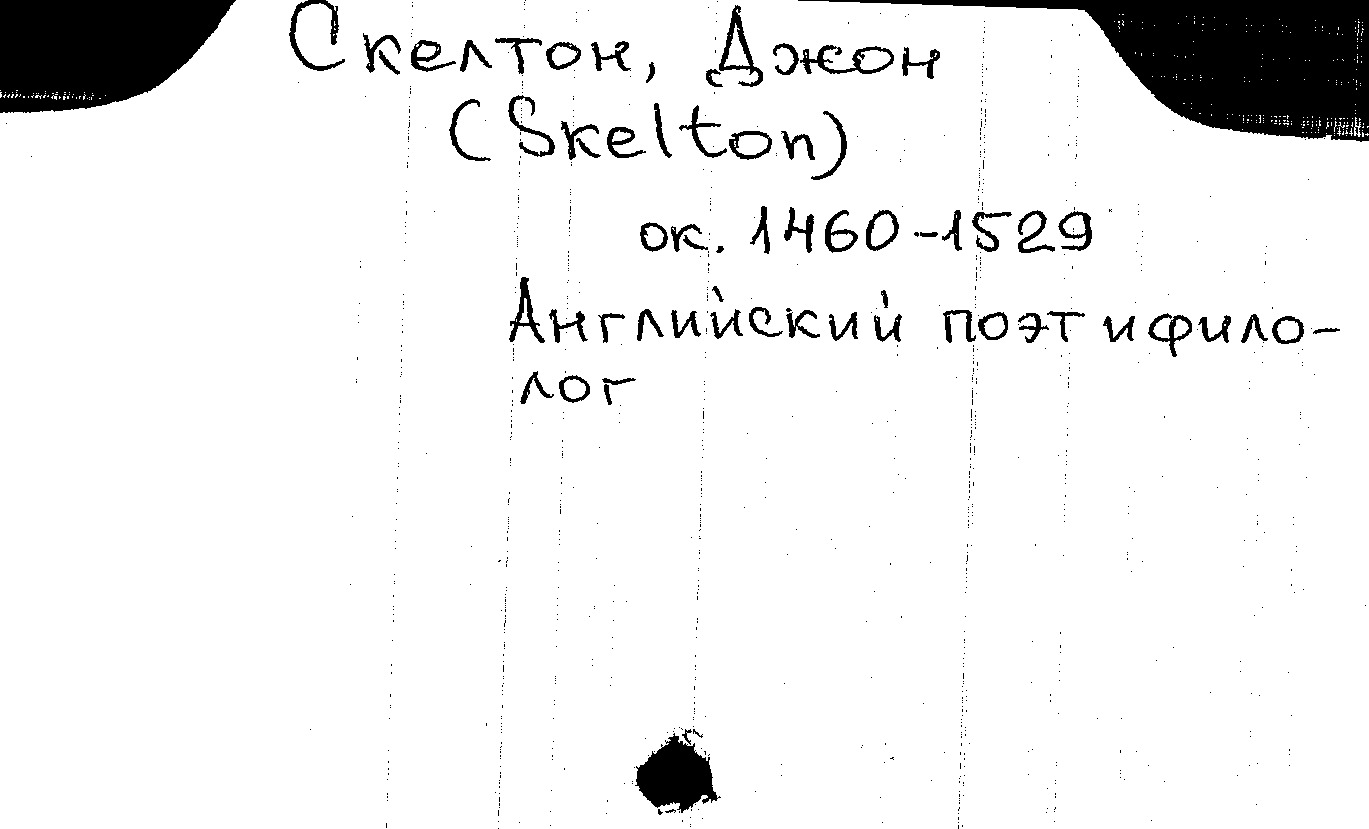 Скелтон, Джон
(Skelton)
ок. 1460-1529
Английский поэт и фило-
лог